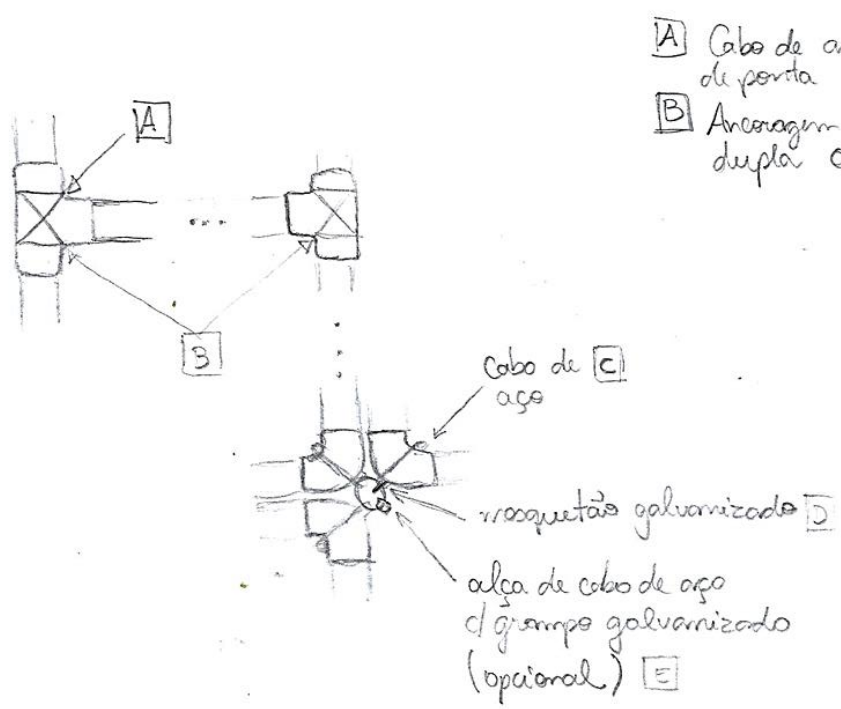 A Cabo de
de ponta
B Ancoragem
dupla
A
B
cabo de C
aço
mosquetão galvanizado D
alça de cabo de aço
c/ grampo galvanizado
(opcional) E